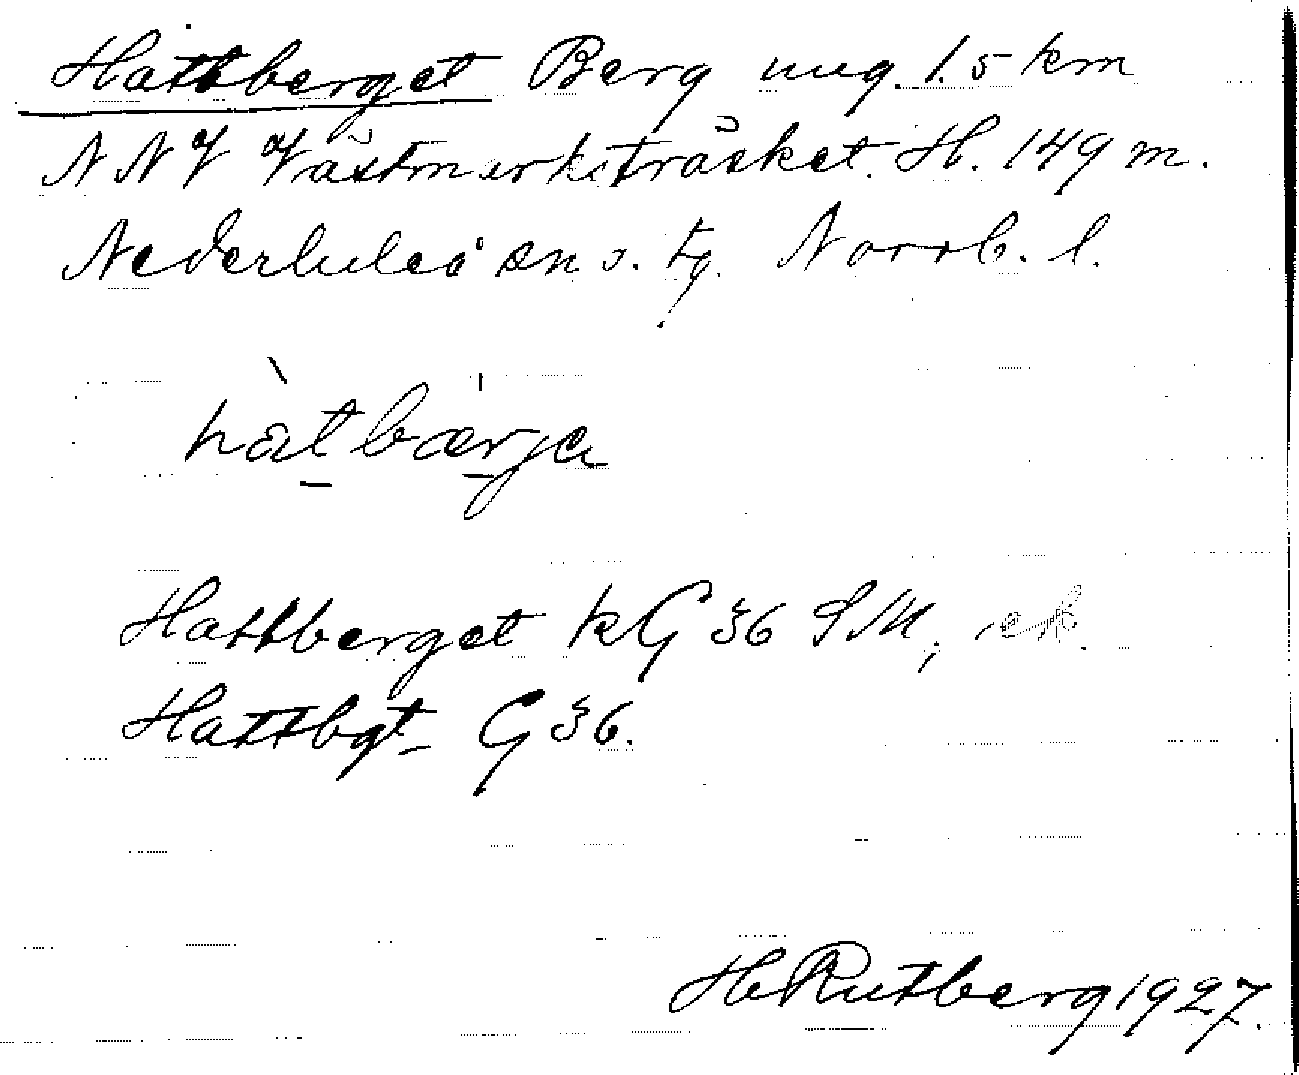 Hattberget Berg ung 1.5 km
NNV Västmarksträsket. H. 149 m.
Nederluleå sn s. tg. Norrb. l.
hàtbærja
Hattberget KG 36 SM,
Hattbgt G 36.
H Rutberg 1927.